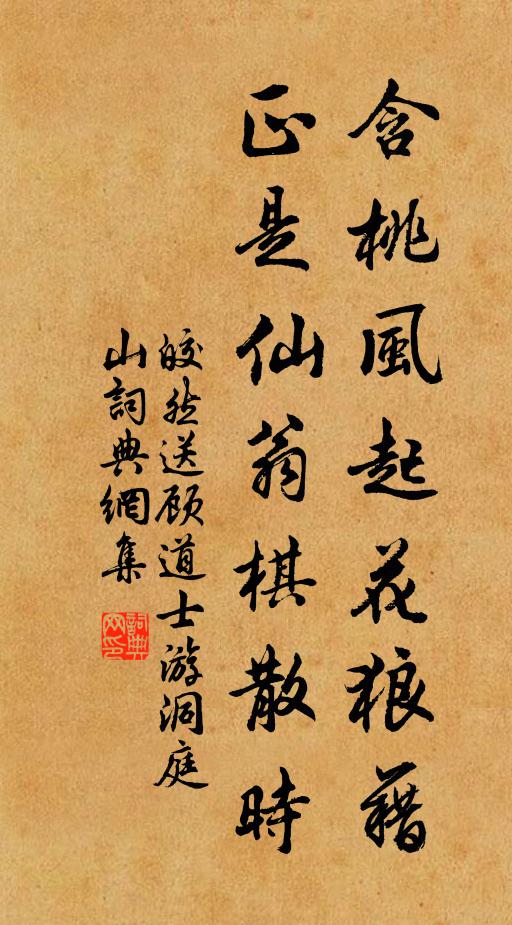 含桃風起花狼藉
正是仙翁棋散時
皎然送顾道士游洞庭
山詞典網集
詞典
网印